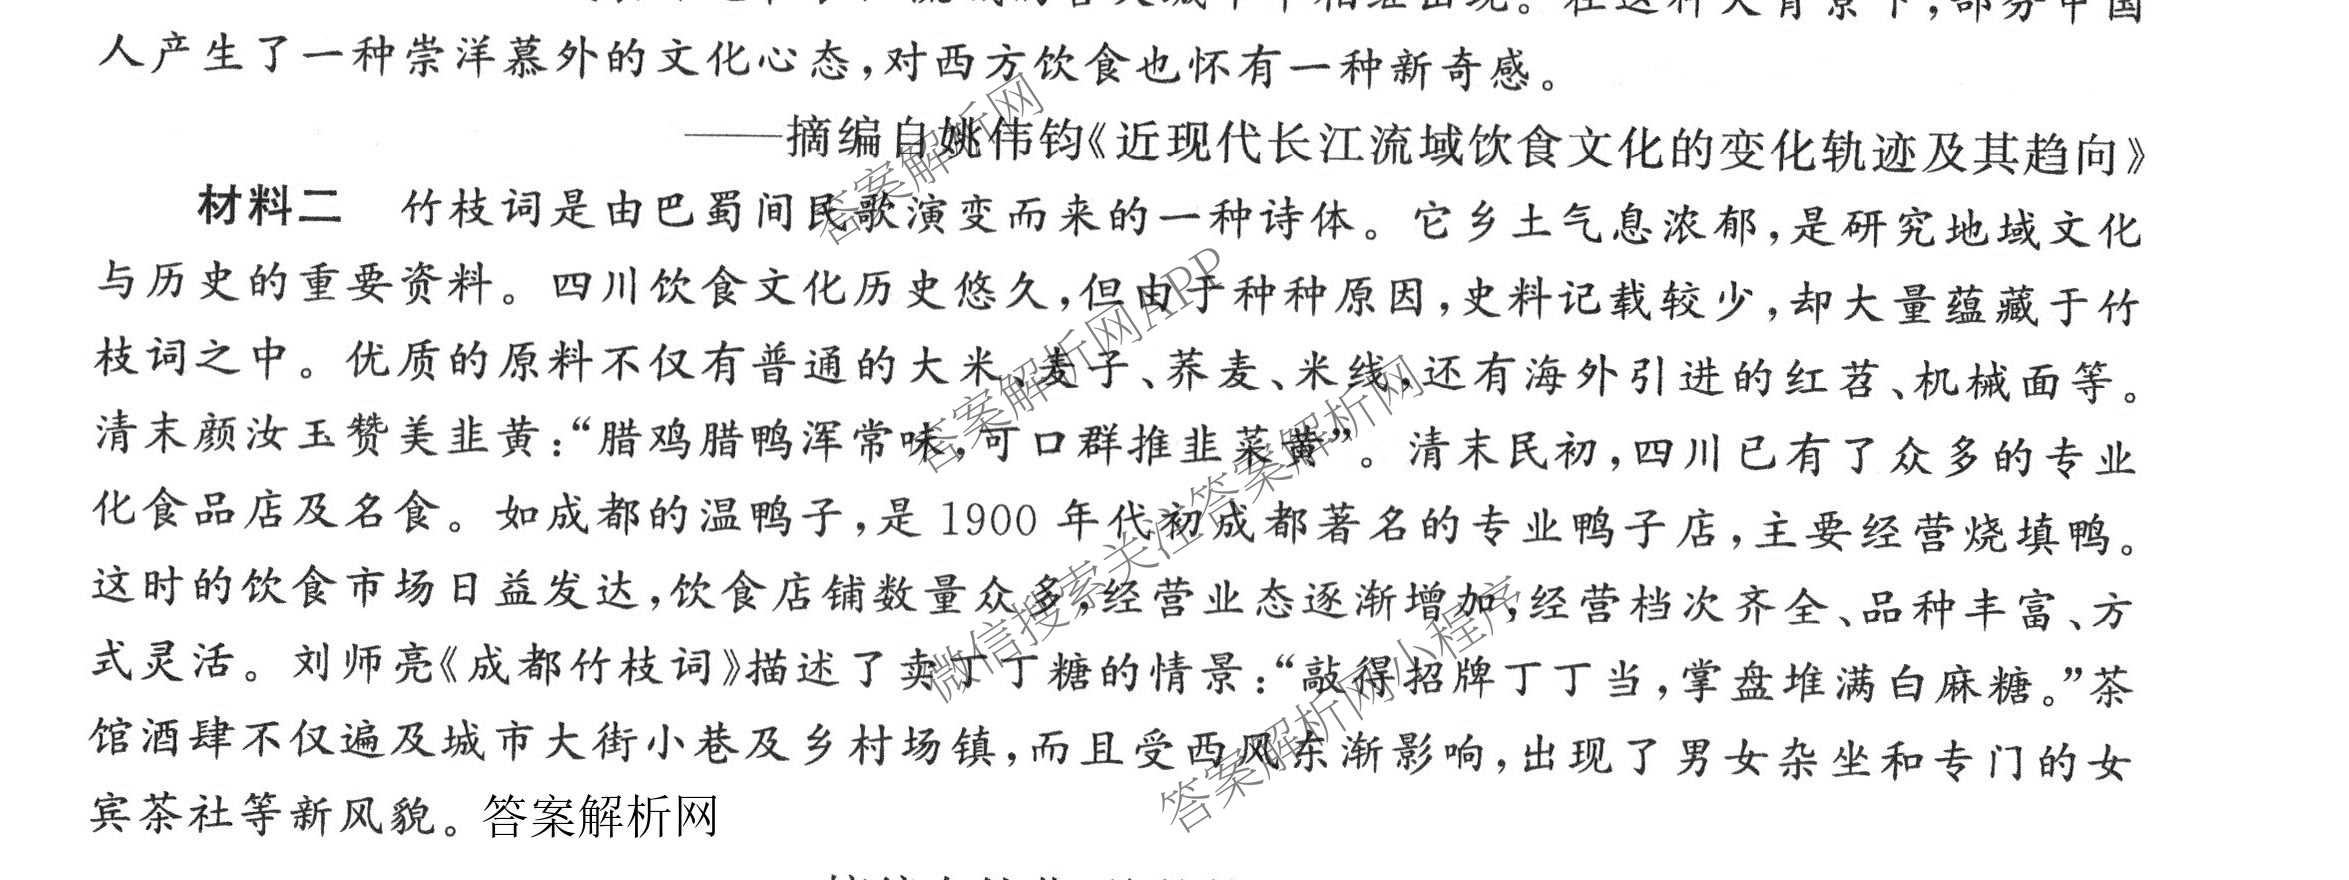 相继出现。在这种大背景下,部分中国
人产生了一种崇洋慕外的文化心态,对西方饮食也怀有一种新奇感。
——摘编自姚伟钧《近现代长江流域饮食文化的变化轨迹及其趋向》
材料二 竹枝词是由巴蜀间民歌演变而来的一种诗体。它乡土气息浓郁,是研究地域文化
与历史的重要资料。四川饮食文化历史悠久,但由于种种原因,史料记载较少,却大量蕴藏于竹
枝词之中。优质的原料不仅有普通的大米、麦子、荞麦、米线,还有海外引进的红苕、机械面等。
清末颜汝玉赞美韭黄:“腊鸡腊鸭浑常味,可口群推韭菜黄”。清末民初,四川已有了众多的专业
化食品店及名食。如成都的温鸭子,是1900年代初成都著名的专业鸭子店,主要经营烧填鸭。
这时的饮食市场日益发达,饮食店铺数量众多,经营业态逐渐增加,经营档次齐全、品种丰富、方
式灵活。刘师亮《成都竹枝词》描述了卖丁丁糖的情景:“敲得招牌丁丁当,掌盘堆满白麻糖。”茶
馆酒肆不仅遍及城市大街小巷及乡村场镇,而且受西风东渐影响,出现了男女杂坐和专门的女
宾茶社等新风貌。答案解析网
答案解析网
答案解析网APP
微信搜索关注答案解析网
答案解析网小程序